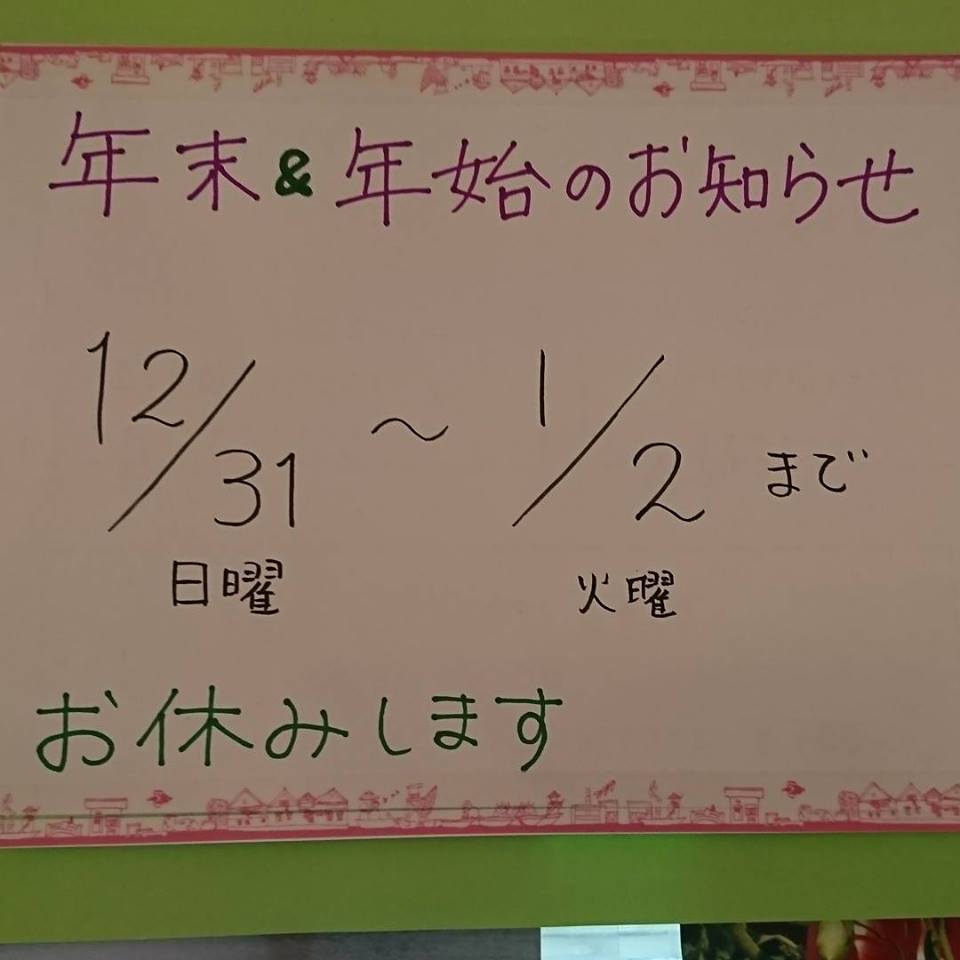 年末&年始のお知らせ
12/31 ～ 1/2 まで
日曜 火曜
お休みします